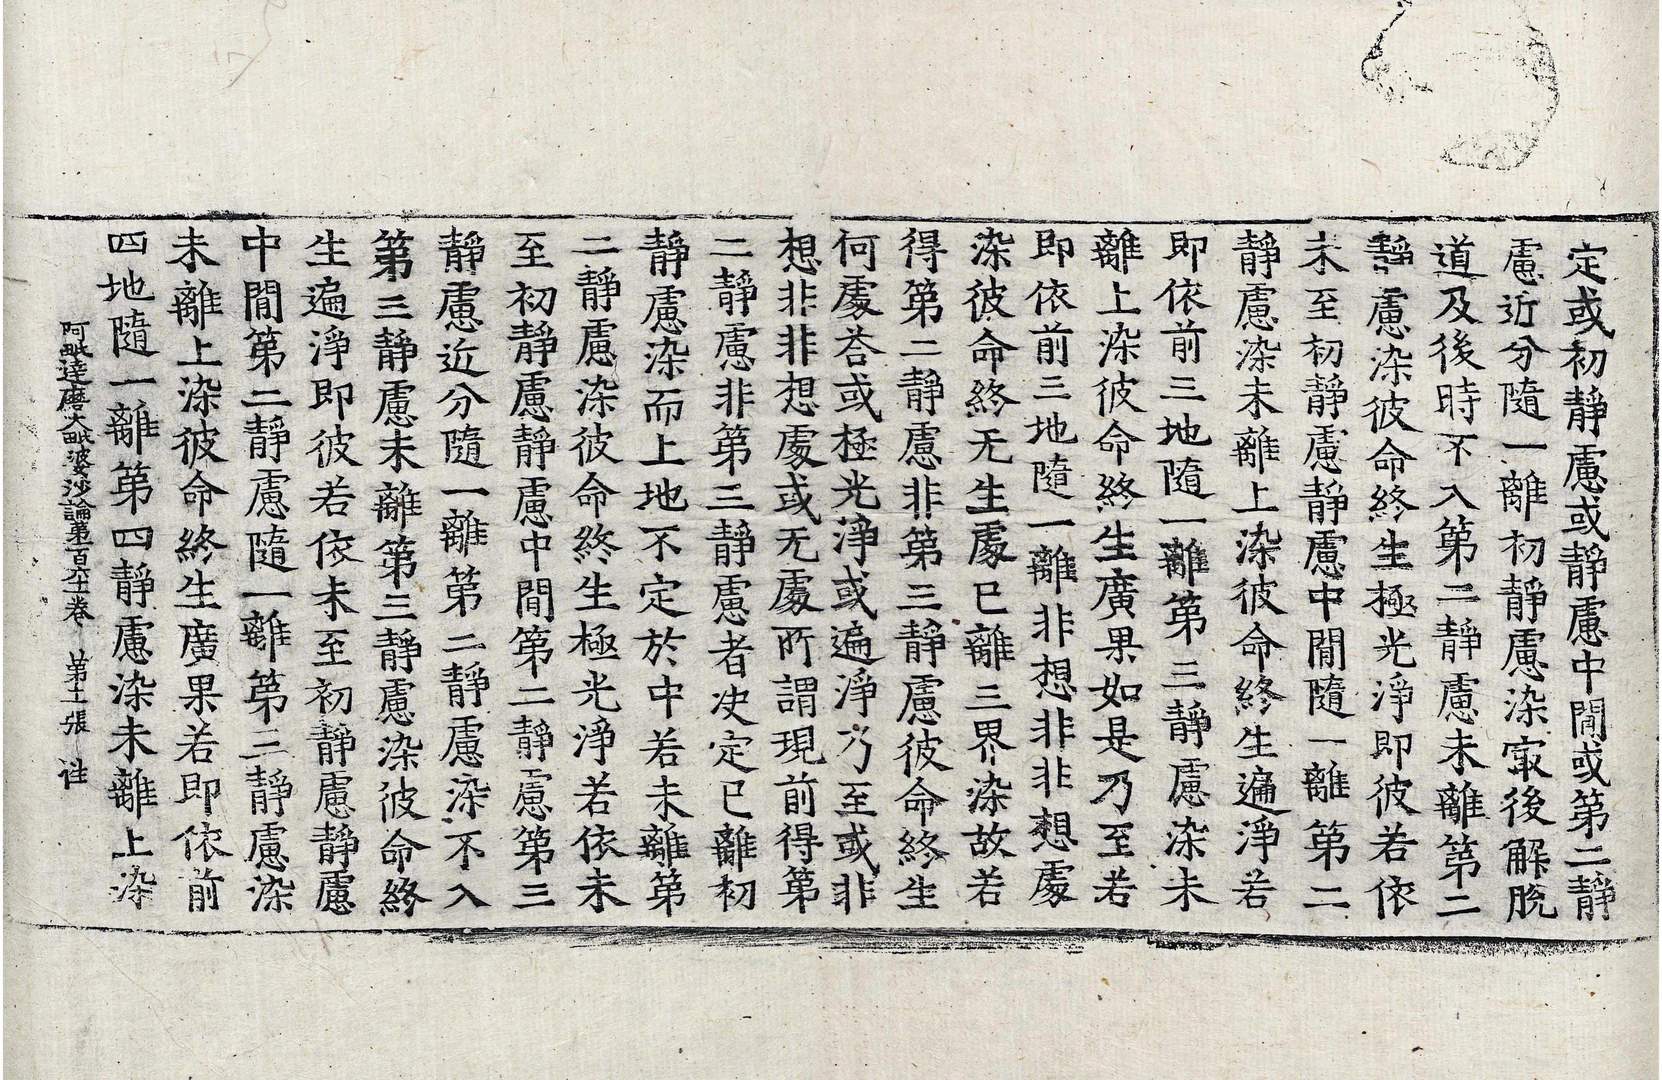 定或初靜慮或靜慮中閒或第二靜
慮近分隨一離初靜慮染㝡後解脫
道及後時不入第二靜慮未離第二
靜慮染彼命終生極光淨即彼若依
未至初靜慮靜慮中閒隨一離第二
靜慮染未離上染彼命終生遍淨若
即依前三地隨一離第三靜慮染未
離上染彼命終生廣果如是乃至若
即依前三地隨一離非想非非想處
染彼命終无生處已離三界染故若
得第二靜慮非第三靜慮彼命終生
何處荅或極光淨或遍淨乃至或非
想非非想處或无處所謂現前得第
二靜慮非第三靜慮者决定已離初
靜慮染而上地不定於中若未離第
二靜慮染彼命終生極光淨若依未
至初靜慮靜慮中閒第二靜慮第三
靜慮近分隨一離第二靜慮染不入
第三靜慮未離第三靜慮染彼命終
生遍淨即彼若依未至初靜慮靜慮
中閒第二靜慮隨一離第三靜慮染
未離上染彼命終生廣果若即依前
四地隨一離第四靜慮染未離上染
阿毗達磨大毗婆沙論第百六十卷 第十一張